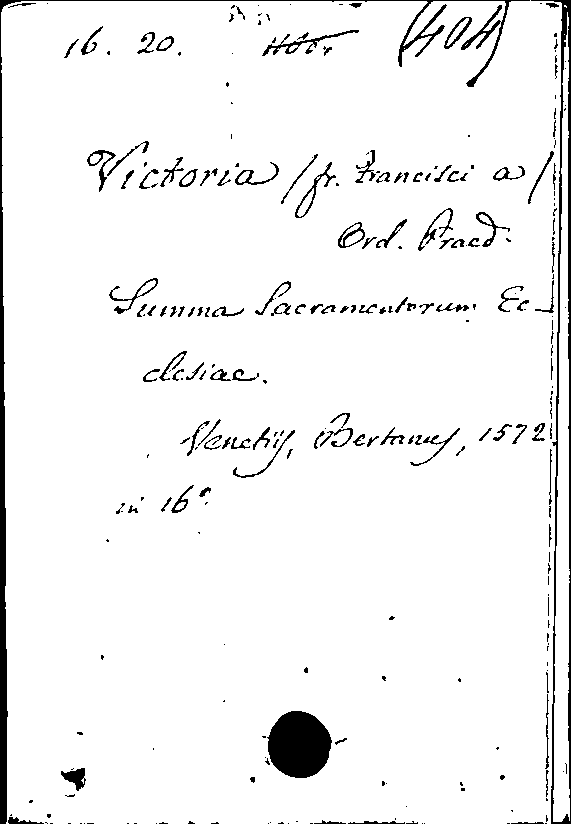 16. 20. (404)
Victoria /fr. Francisci a/
Ord. Praed.
Summa Sacramentorum Ec-
clesiae.
Venetiis, Bertanus, 1572
in 16º